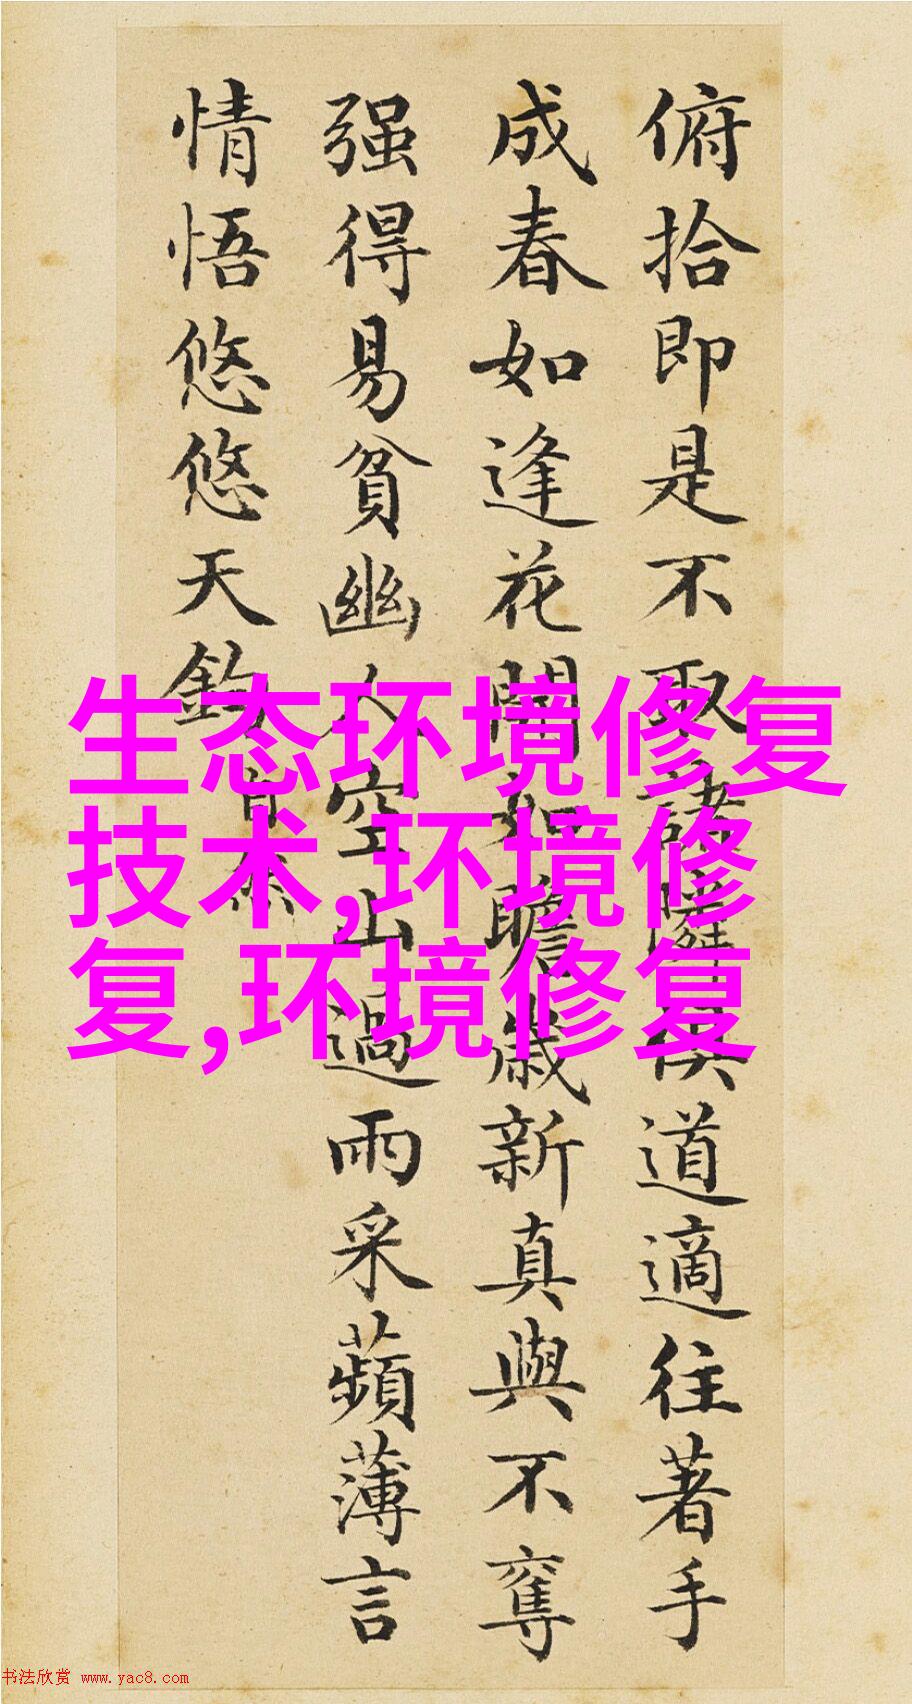 俯拾即是不取諸隣俱道適往著手
成春如逢花開如瞻歲新真與不奪
强得易貧幽人空山過雨采蘋薄言
情悟悠悠天鈞自然
生态环境修复
技术,环境修
复,环境修复
书法欣赏 www.yac8.com